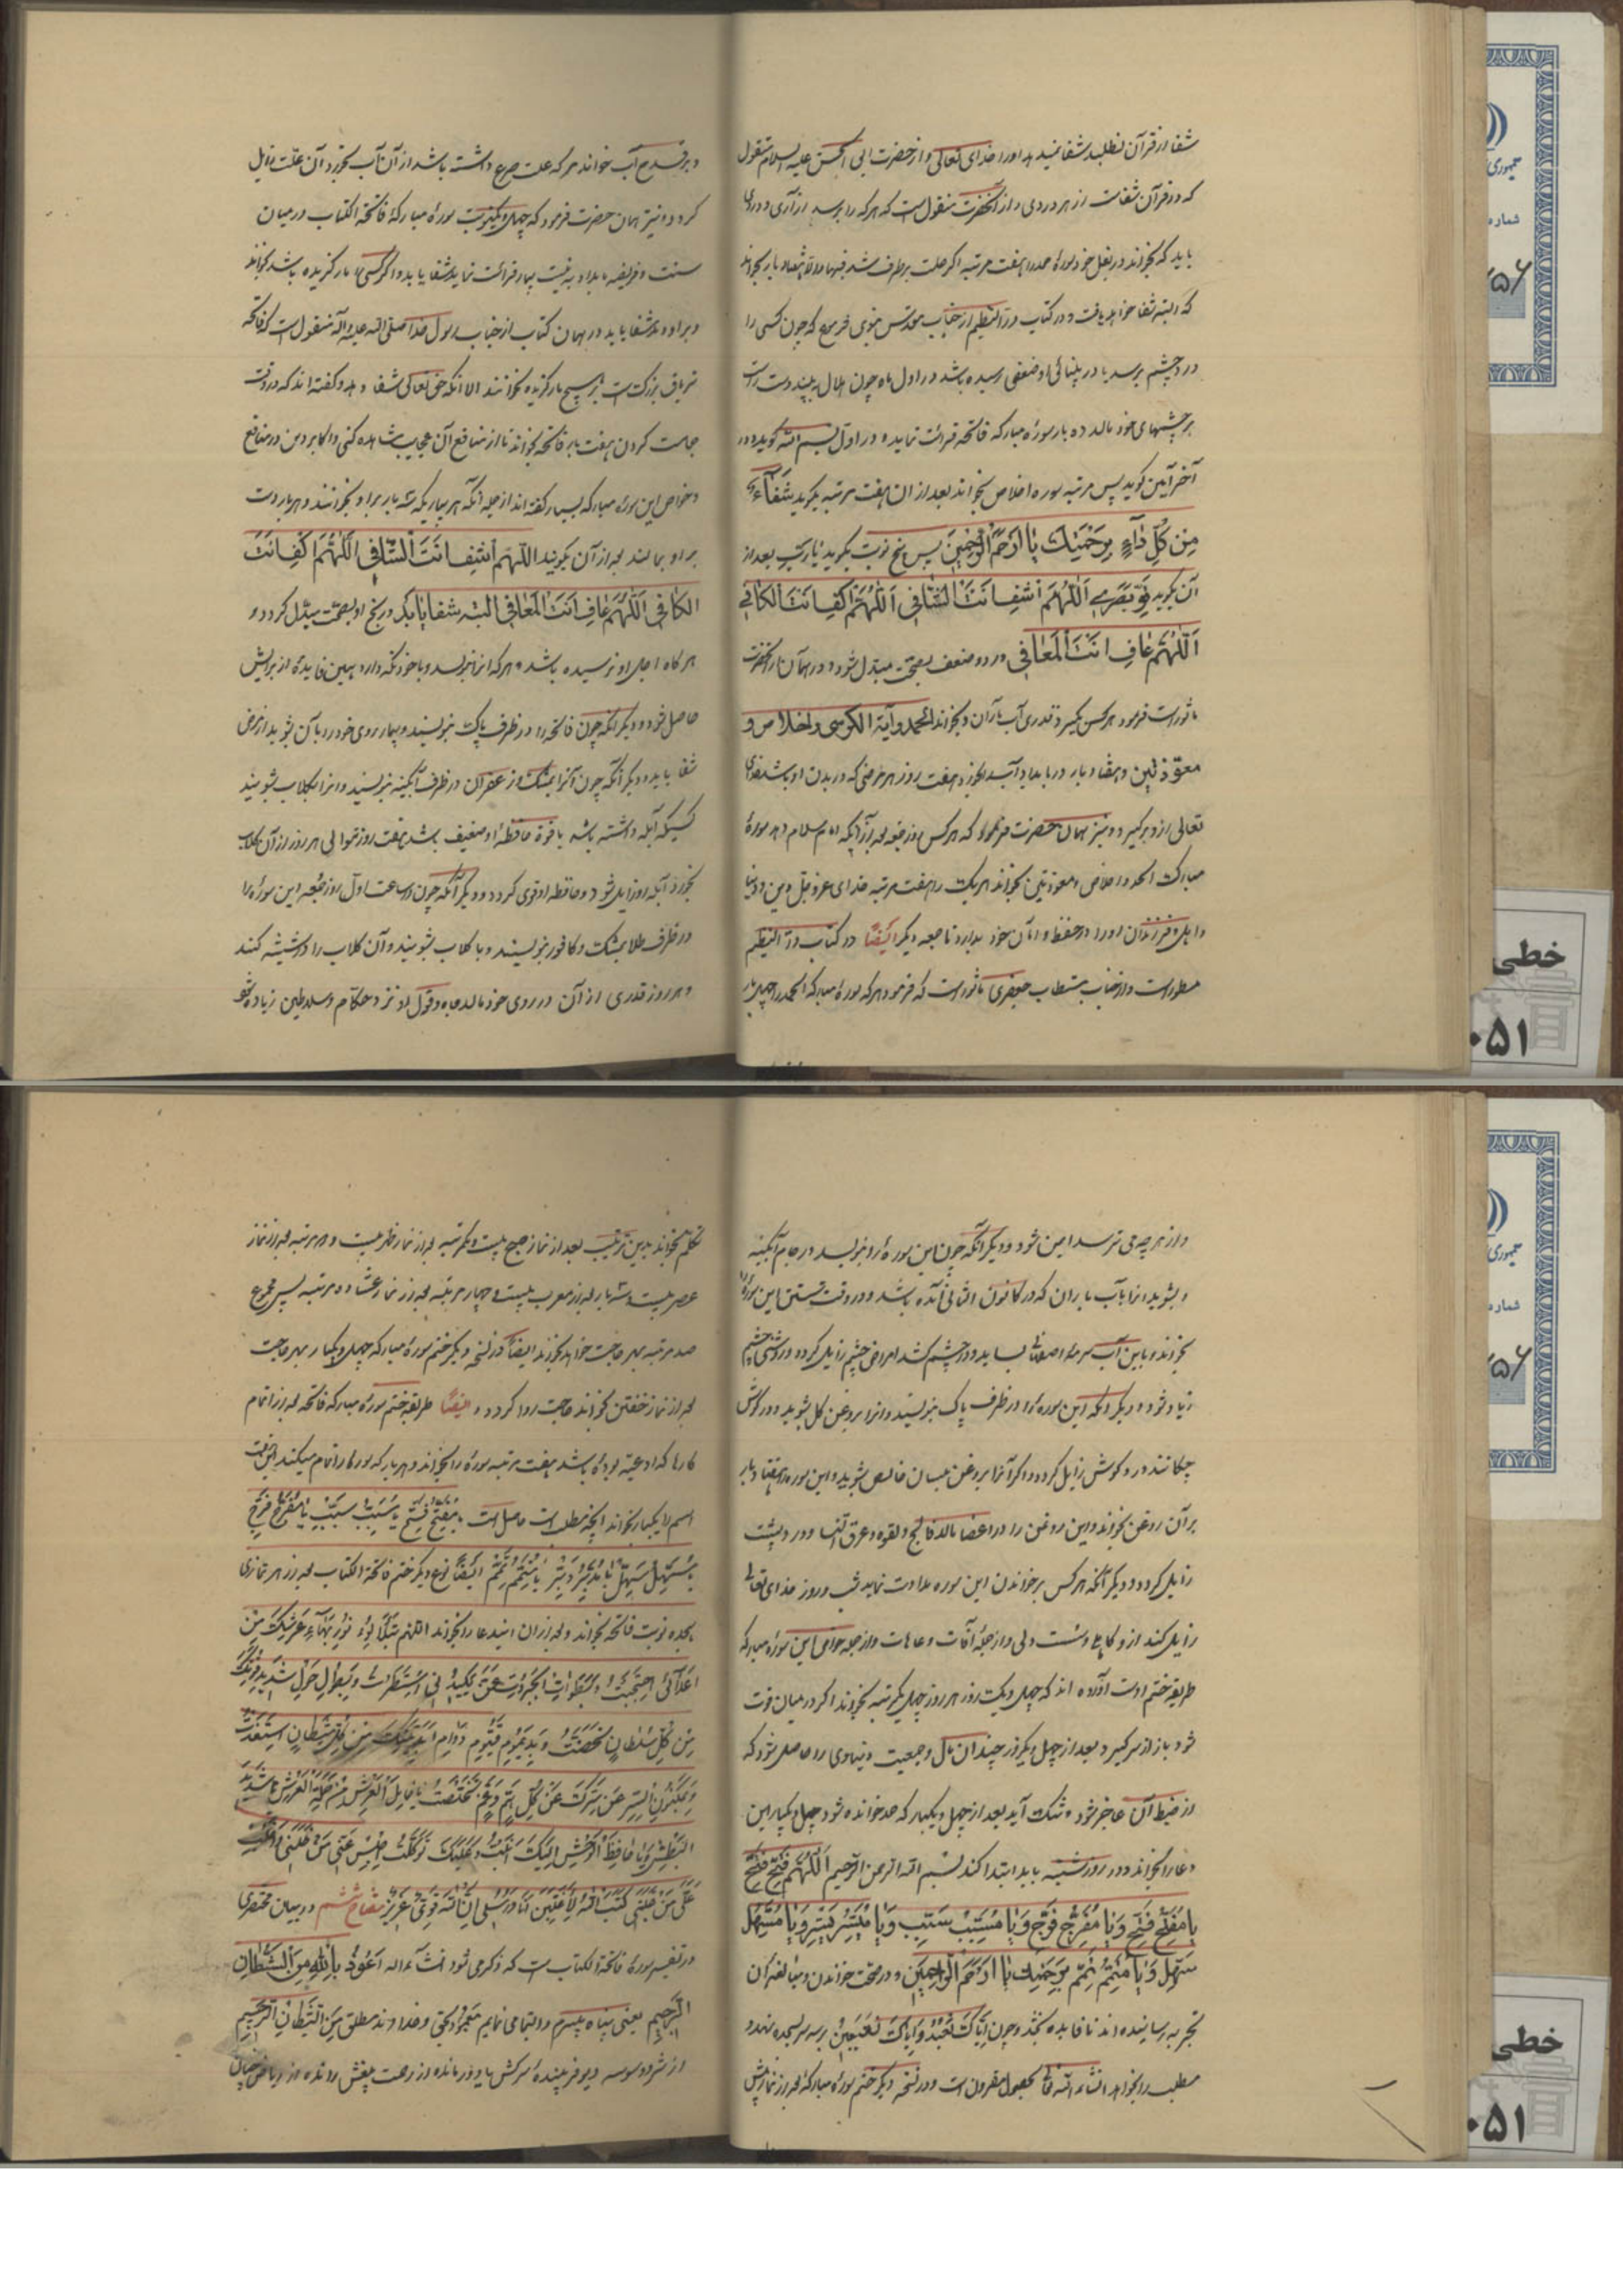 شفا از قرآن نطلبد شفا ندهد او را خدای تعالی و از حضرت ابی الحسن علیه السلام منقول
که در قرآن شفاست از هر دردی و از آنحضرت منقول است که هر که را برسد آزاری و دردی
باید که بخواند در بغل خود سورهٔ حمد را هفت مرتبه اگر علت برطرف شد فبها و الا هفتاد بار بخواند
که البته شفا خواهد یافت و در کتاب در النظیم از جناب مقدس نبوی که چون کسی را
درد چشم برسد یا در بینائی او ضعفی رسیده باشد در اول ماه چون هلال به بیند دست راست
بر چشمهای خود مالد ده بار سوره مبارکه فاتحه قرائت نماید و در اول بسم الله گوید و در
آخر آمین گوید پس مرتبه سوره اخلاص بخواند بعد از ان هفت مرتبه بگوید شفآء
مِن کُلِّ دٰآءٍ بِرَحْمَتِكَ یٰا اَرْحَمَ الرّٰحِمینَ پس پنج نوبت بگوید یٰا رَبِّ بعد از
آن بگوید قَوِّ بَصَری اَللّٰهُمَّ اشْفِ اَنْتَ الشّٰافی اَللّٰهُمَّ اکْفِ اَنْتَ الْکٰافی
اَللّٰهُمَّ عٰافِ اَنْتَ الْمُعٰافی درد و ضعف بصحت مبتدل شود و در همان از آنحضرت
ماثور است فرمود هر کس بگیرد قدری آب باران و بخواند الحمد و آیة الکرسی و اخلاص و
معوّذتین و هفتاد بار در بامداد آب بخورد هفت روز هر مرضی که در بدن او باشد خدای
تعالی ازو برگیرد و نیز همان حضرت فرمود که هر کس روز جمعه بعد از آنکه امام سلام دهد سورهٔ
مبارکه الحمد و اخلاص و معوذتین بخواند هر یک را هفت مرتبه خدای عز و جل دین و دنیا
و اهل و فرزندان او را در حفظ و امان خود بدارد تا جمعه دیگر ایضاً در کتاب در النظیم
مسطور است و از جناب مستطاب جعفری ماثور است که فرمود هر که سوره مبارکه الحمد را چهل بار
و بر قدح آب خواند هر که علت صرع داشته باشد از آن آب بخورد آن علت زایل
گردد و نیز همان حضرت فرمود که چهل و یکنوبت سورهٔ مبارکهٔ فاتحة الکتاب در میان
سنت و فریضه بامداد به نیت بیمار قرائت نماید شفا یابد و اگر کسی را مار گزیده باشد بخواند
و بر او دمد شفا یابد در همان کتاب از جناب رسول خدا صلی الله علیه و آله منقول است که فاتحه
تریاق بزرگ است بر هیچ مار گزیده نخوانند الا انکه حق تعالی شفا دهد و گفته اند که در وقت
حجامت کردن هفت بار فاتحه بخواند تا از منافع آن عجایب مشاهده کنی و اکابر دین در منافع
و خواص این سورهٔ مبارکه بسیار گفته اند از جمله آنکه هر بیمار یکه سه بار بر او بخوانند و هر بار دست
بر او بمالند بعد از آن بگویند اَللّٰهُمَّ اشْفِ اَنْتَ الشّٰافی اَللّٰهُمَّ اکْفِ اَنْتَ
الکٰافی اَللّٰهُمَّ عٰافِ اَنْتَ الْمُعٰافی البته شفا یابد و رنج او بصحت مبدل گردد و
هرگاه اجل او نرسیده باشد و هر که انرا بنویسد و با خود نگه دارد همین فایده از برایش
حاصل شود و دیگر آنکه چون فاتحه را در ظرف پاک بنویسند و بیمار روی خود را بآن بشوید از مرض
شفا یابد و دیگر آنکه چون آنرا بمشک و زعفران در ظرف آبگینه بنویسند و انرا بگلاب بشویند
کسیکه آبله داشته باشد یا قوة حافظهٔ او ضعیف باشد هفت روز متوالی هر روز از آن گلاب
بخورد آبله او زایل شود و حافظه او قوی گردد و دیگر آنکه چون در ساعت اول روز جمعه این سوره را
در ظرف طلا بمشک و کافور بنویسند و با گلاب بشویند و آن گلاب را در شیشه کنند
و هر روز قدری از آن در روی خود مالد جاه و قبول او نزد حکام و سلاطین زیاده شود
و از هر چه می ترسد امین شود و دیگر آنکه چون این سوره را بنویسد در جام آبگینه
و بشوید انرا بآب باران که در کانون الثانی آمده باشد و در وقت شستن این سوره را
بخواند و باین آب سرمه اصفهانی بساید و در چشم کشد امراض چشم زایل گردد و روشنی چشم
زیاد شود و دیگر آنکه این سوره را در ظرف پاک بنویسند و انرا بروغن گل بشوید و در گوش
چکانند درد گوش زایل گردد و اگر آنرا بروغن بلسان خالص بشوید و این سوره را هفتاد بار
بر آن روغن بخواند و این روغن را در اعضا مالد فالج و لقوه و عرق النسا و درد پشت
زایل گردد و دیگر آنکه هر کس بر خواندن این سوره مداومت نماید شب و روز خدای تعالی
زایل کند ازو کاهلی و سستی و از جملهٔ آفات و عاهات و از جمله خواص این سوره مبارکه
طریق ختم اوست آورده اند که چهل و یک روز هر روز چهل و یکمرتبه بخواند اگر در میان فوت
شود باز از سر گیرد بعد از چهل و یکروز چندان مال و جمعیت دنیاوی رو حاصل شود که
از ضبط آن عاجز شود و تنگ آید بعد از چهل و یکبار که حمد خوانده شود چهل و یکبار این
دعا را بخواند و در روز شنبه باید ابتدا کند بسم الله الرحمن الرحیم اَللّٰهُمَّ فَتِّحْ فَتِّحْ
یا مُفَتِّحُ فَتِّحْ وَ یٰا مُفَرِّجُ فَرِّجْ وَ یٰا مُسَبِّبُ سَبِّبْ وَ یٰا مُیَسِّرُ یَسِّرْ وَ یٰا مُسَهِّلُ
سَهِّلْ وَ یٰا مُتَمِّمُ تَمِّمْ بِرَحْمَتِكَ یٰا اَرْحَمَ الرّٰاحِمینَ و در صحت خواندن و مبالغه آن
تجربه رسانیده اند تا فایده بخشد و چون اِیّٰاكَ نَعْبُدُ وَ اِیّٰاكَ نَسْتَعینُ رسد سر بسجده نهد و
مطلب را بخواهد انشاء الله تعالی بحصول مقرون است و در نسخه دیگر ختم سورهٔ مبارکه بعد از نماز پیش
تکلم بخواند بدین ترتیب بعد از نماز صبح بیست و یکمرتبه بعد از نماز ظهر بیست و دو مرتبه بعد از نماز
عصر بیست و سه بار بعد از مغرب بیست و چهار مرتبه بعد از نماز عشا ده مرتبه پس مجموع
صد مرتبه بهر حاجت خواهد بخواند ایضاً در نسخه دیگر ختم سورهٔ مبارکه چهل و یکبار بهر حاجت
بعد از نماز خفتن بخواند حاجت روا گردد و ایضاً طریقه ختم سورهٔ مبارکه فاتحه بعد از اتمام
کارها که ادعیه بوده باشد هفت مرتبه سوره را بخواند و هر بار که سوره را تمام میکند این هفت
اسم را یکبار بخواند آنچه مطلب است حاصل است یا مُفَتِّحُ فَتِّحْ یا مُسَبِّبُ سَبِّبْ یا مُفَرِّجُ فَرِّجْ
یا مُسَهِّلُ سَهِّلْ یا مُیَسِّرُ یَسِّرْ یا مُتَمِّمُ تَمِّمْ ایضاً نوع دیگر ختم فاتحة الکتاب بعد از هر نمازی
هجده نوبت فاتحه بخواند و بعد از ان این دعا را بخواند اللهم بِتَلَأْلُؤِ نُورِ بَهٰآءِ عَرْشِكَ مِنْ
اَعْدٰآئی احْتَجَبْتُ وَ بِسَطْوَةِ الْجَبَرُوتِ مِمَّنْ یَکیدُنی اسْتَتَرْتُ وَ بِطَوْلِ حَوْلِ شَدیدِ قُوَّتِكَ
مِنْ کُلِّ سُلْطٰانٍ تَحَصَّنْتُ وَ بِدَیْمُومِ قَیُّومِ دَوٰامِ اَبَدِیَّتِكَ مِنْ کُلِّ شَیْطٰانٍ اسْتَعَذْتُ
وَ بِمَکْنُونِ السِّرِّ مِنْ سِرِّكَ مِنْ کُلِّ هَمٍّ وَ غَمٍّ تَخَلَّصْتُ یا حٰامِلَ الْعَرْشِ مِنْ حَمَلَةِ الْعَرْشِ یا شَدیدَ
الْبَطْشِ وَ یا حٰابِسَ الْوَحْشِ اِلَیْكَ اَنَبْتُ وَ عَلَیْكَ تَوَکَّلْتُ احْبِسْ عَنّی مَنْ ظَلَمَنی وَ اغْلِبْ
عَلیٰ مَنْ غَلَبَنی کَتَبَ اللّٰهُ لَاَغْلِبَنَّ اَنَا وَ رُسُلی اِنَّ اللّٰهَ قَوِیٌّ عَزیزٌ مفتاح ششم در بیان مختصری
در تفسیر سورهٔ فاتحة الکتاب است که ذکر می شود انشآء الله اَعُوذُ بِاللّٰهِ مِنَ الشَّیْطٰانِ
الرَّجیمِ یعنی پناه میبرم و التجا می نمایم بمعبود بحق و خداوند مطلق مِنَ الشَّیْطٰانِ الرَّجیمِ
از شر و وسوسه دیو فریبندهٔ سرکش یا دور مانده از رحمت یعنی رانده از ریاض جنان
جمهوری
شماره
خطی
۰۵۱
جمهوری
شماره
خطی
۰۵۱